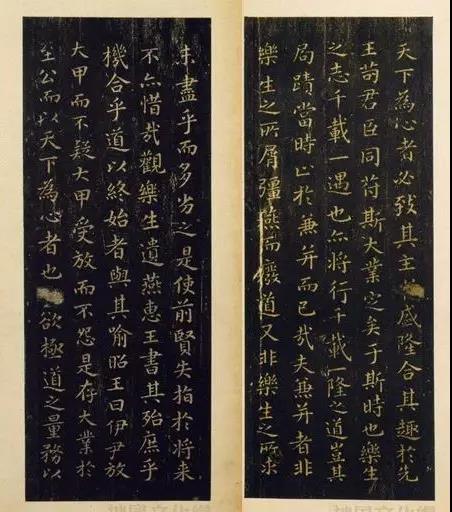 未盡乎而多劣之是使前賢失指於將来
不亦惜哉觀樂生遺燕惠王書其殆庶乎
機合乎道以終始者與其喻昭王曰伊尹放
大甲而不疑大甲受放而不怨是存大業於
至公而以天下為心者也欲極道之量務以
天下為心者必致其主盛隆合其趣於先
王苟君臣同符斯大業定矣于斯時也樂生
之志千載一遇也亦將行千載一隆之道豈其
局蹟當時止於兼并而已哉夫兼并者非
樂生之所屑彊燕而廢道又非樂生之所求